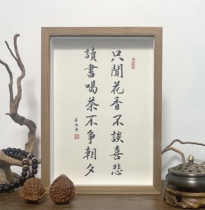 只聞花香不談喜悲
讀書喝茶不爭朝夕